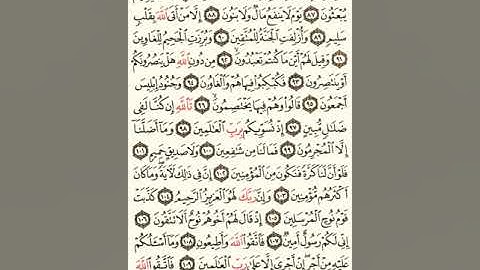 يُبْعَثُونَ ٨٧ يَوْمَ لَا يَنفَعُ مَالٌ وَلَا بَنُونَ ٨٨ إِلَّا مَنْ أَتَى ٱللَّهَ بِقَلْبٍ
سَلِيمٍ ٨٩ وَأُزْلِفَتِ ٱلْجَنَّةُ لِلْمُتَّقِينَ ٩٠ وَبُرِّزَتِ ٱلْجَحِيمُ لِلْغَاوِينَ
٩١ وَقِيلَ لَهُمْ أَيْنَ مَا كُنتُمْ تَعْبُدُونَ ٩٢ مِن دُونِ ٱللَّهِ هَلْ يَنصُرُونَكُمْ
أَوْ يَنتَصِرُونَ ٩٣ فَكُبْكِبُوا۟ فِيهَا هُمْ وَٱلْغَاوُۥنَ ٩٤ وَجُنُودُ إِبْلِيسَ
أَجْمَعُونَ ٩٥ قَالُوا۟ وَهُمْ فِيهَا يَخْتَصِمُونَ ٩٦ تَٱللَّهِ إِن كُنَّا لَفِى
ضَلَٰلٍ مُّبِينٍ ٩٧ إِذْ نُسَوِّيكُم بِرَبِّ ٱلْعَٰلَمِينَ ٩٨ وَمَآ أَضَلَّنَآ
إِلَّا ٱلْمُجْرِمُونَ ٩٩ فَمَا لَنَا مِن شَٰفِعِينَ ١٠٠ وَلَا صَدِيقٍ حَمِيمٍ ١٠١
فَلَوْ أَنَّ لَنَا كَرَّةً فَنَكُونَ مِنَ ٱلْمُؤْمِنِينَ ١٠٢ إِنَّ فِى ذَٰلِكَ لَءَايَةً وَمَا كَانَ
أَكْثَرُهُم مُّؤْمِنِينَ ١٠٣ وَإِنَّ رَبَّكَ لَهُوَ ٱلْعَزِيزُ ٱلرَّحِيمُ ١٠٤ كَذَّبَتْ
قَوْمُ نُوحٍ ٱلْمُرْسَلِينَ ١٠٥ إِذْ قَالَ لَهُمْ أَخُوهُمْ نُوحٌ أَلَا تَتَّقُونَ ١٠٦
إِنِّى لَكُمْ رَسُولٌ أَمِينٌ ١٠٧ فَٱتَّقُوا۟ ٱللَّهَ وَأَطِيعُونِ ١٠٨ وَمَآ أَسْـَٔلُكُمْ
عَلَيْهِ مِنْ أَجْرٍ إِنْ أَجْرِىَ إِلَّا عَلَىٰ رَبِّ ٱلْعَٰلَمِينَ ١٠٩ فَٱتَّقُوا۟ ٱللَّهَ